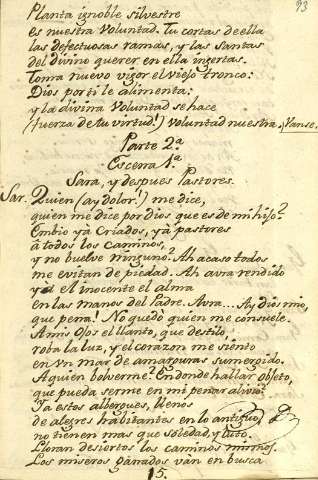 93
Planta ignoble silvestre
es nuestra Voluntad. Tu cortas de ella
las defectuosas ramas, y las santas
del divino querer en ella ingertas.
Toma nuevo vigor el viejo tronco:
Dios por ti le alimenta:
y la divina Voluntad se hace
(fuerza de tu virtud!) voluntad nuestra. Vanse.
Parte 2.a
Escena 1.a
Sara, y despues Pastores.
Sar. Quien (ay dolor!) me dice,
quien me dice por dios que es de mi hijo?
Embio yà criados, yà pastores
à todos los caminos,
y no buelve ninguno? Ah acaso todos
me evitan de piedad. Ah avra rendido
yà el inocente el alma
en las manos del Padre. Avra... Ah, dios mio,
que pena! No quedò quien me consuele.
A mis ojos el llanto, que destilo
roba la luz, y el corazon me siento
en un mar de amarguras sumergido.
A quien bolverme? En donde hallar objeto,
que pueda serme en mi penar alivio?
Ya estos albergues, llenos
de alegres habitantes en lo antiguo,
no tienen mas que soledad, y luto.
Lloran desiertos los caminos mismos.
Los miseros ganados ván en busca
15.